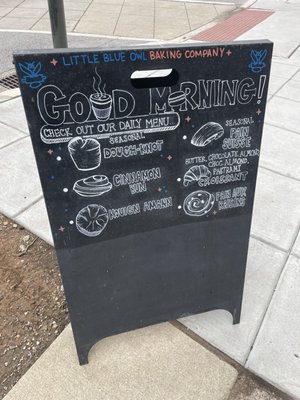 LITTLE BLUE OWL BAKING COMPANY
GOOD MORNING!
CHECK OUT OUR DAILY MENU
SEASONAL
DOUGH-KNOT
CINNAMON
BUN
KOUIGN AMANN
SEASONAL
PAIN
SUISSE
BUTTER, CHOCOLATE, ALMOND,
CHOC. ALMOND,
PASTRAMI
CROISSANT
PAIN AUX
RAISINS